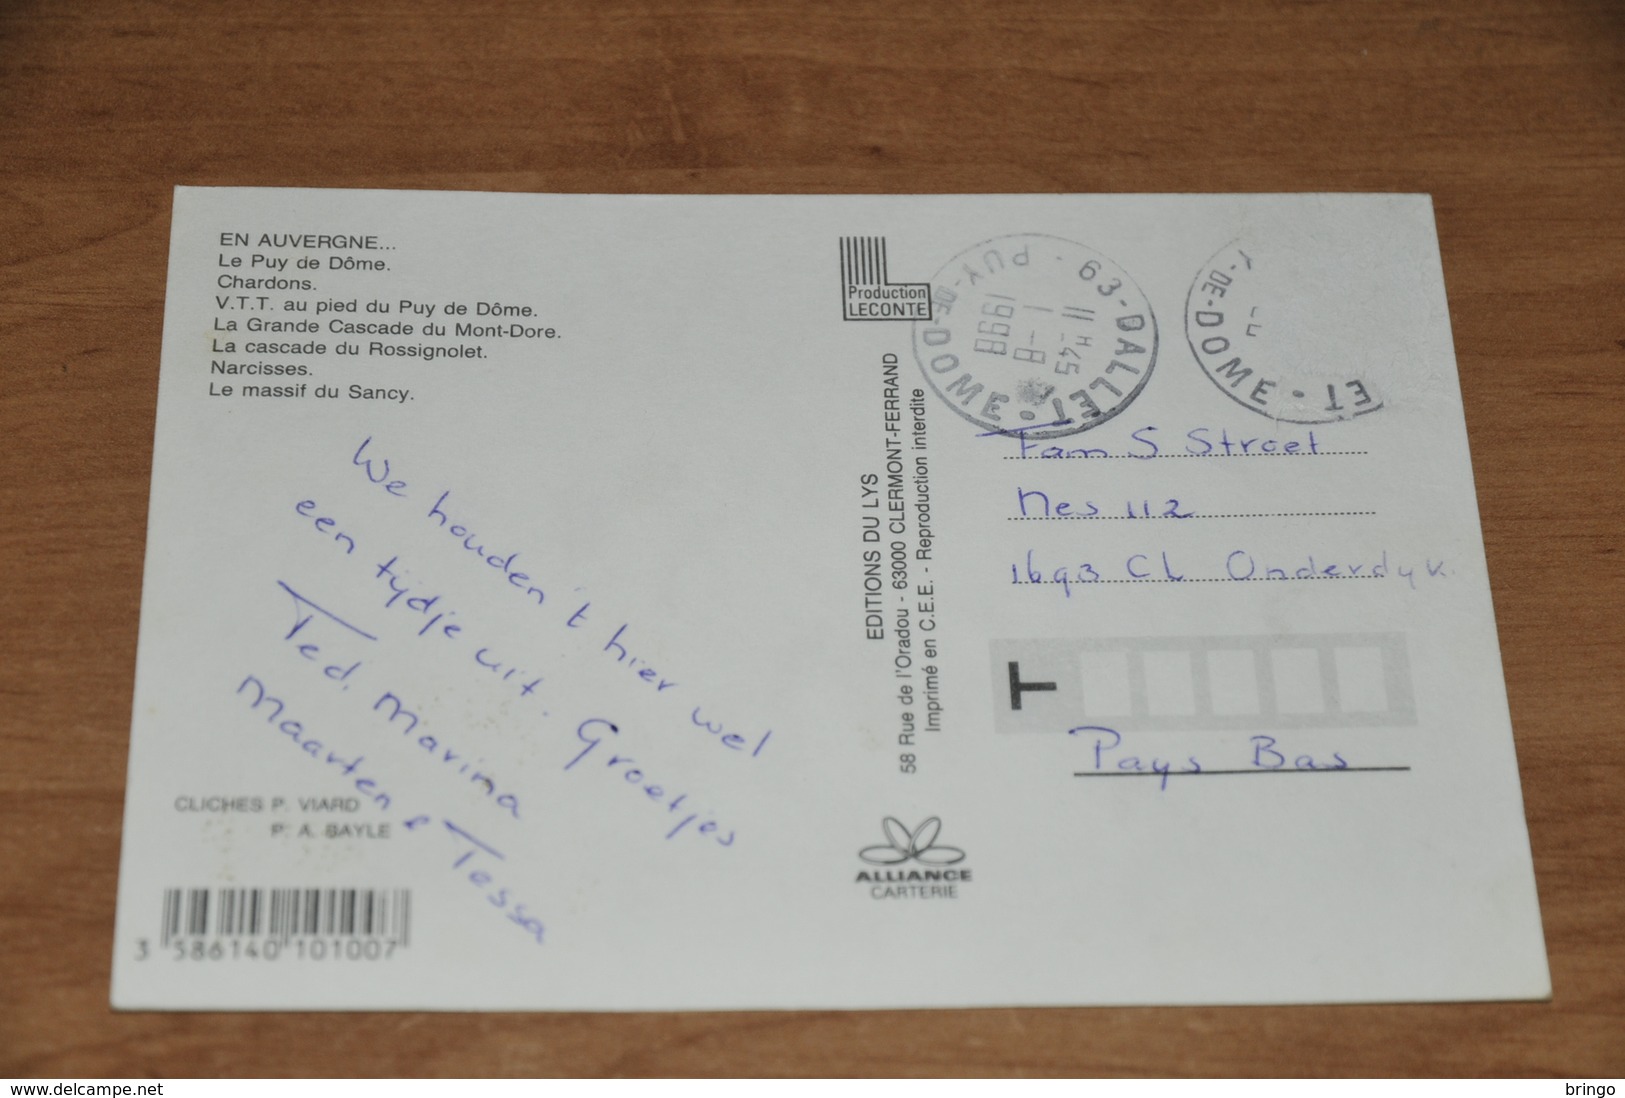 EN AUVERGNE...
Le Puy de Dôme.
Chardons.
V.T.T. au pied du Puy de Dôme.
La Grande Cascade du Mont-Dore.
La cascade du Rossignolet.
Narcisses.
Le massif du Sancy.
We houden 't hier wel
een tijdje uit. Groetjes
Ted, Marina
Maarten & Tessa
CLICHES P. VIARD
P. A. BAYLE
3 586140 101007
Production
LECONTE
EDITIONS DU LYS
58 Rue de l'Oradou - 63000 CLERMONT-FERRAND
Imprimé en C.E.E. - Reproduction interdite
ALLIANCE
CARTERIE
63-DALLET • PUY-DE-DOME
11 H45
1-8
1998
-DE-DOME • ET
Fam S Stroet
Nes 112
1693 CL Onderdyk.
T
Pays Bas
www.delcampe.net
bringo